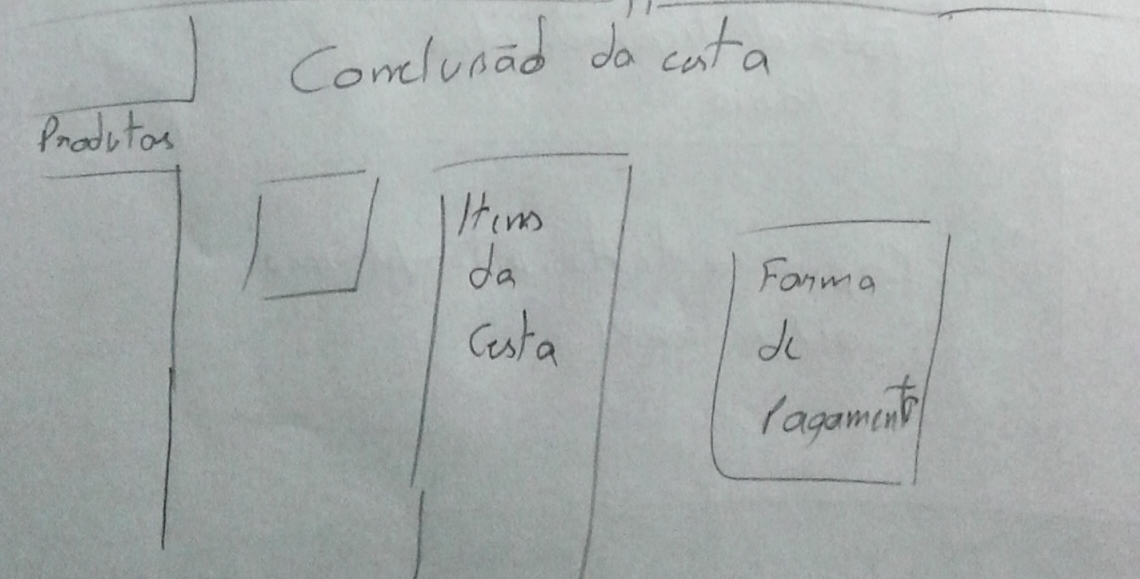 Conclusão da cesta
Produtos
Itens
da
Cesta
Forma
de
Pagamento